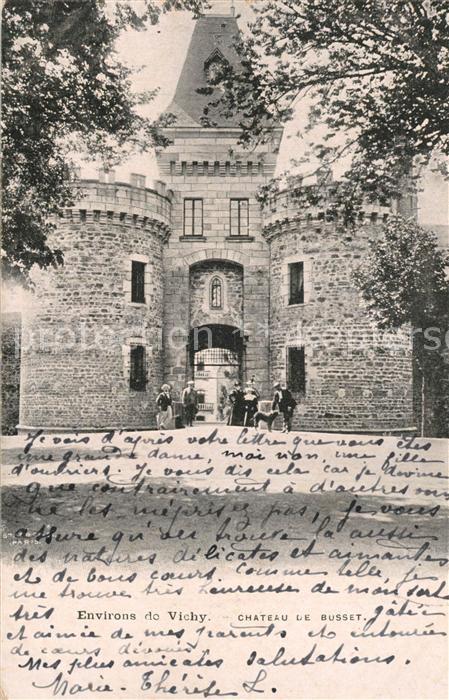 Je vois d'après votre lettre que vous êtes
une grande dame, moi non, une fille
d'ouvriers. Je vous dis cela car je devine
que contrairement à d'autres vous
ne les méprisez pas, je vous
assure qu'on trouve là aussi
des natures délicates et aimantes
et de bons cœurs. Comme telle, je
me trouve très heureuse de mon sort
très gâtée
Environs de Vichy. - CHATEAU DE BUSSET.
et aimée de mes parents et entourée
de cœurs dévoués
Mes plus amicales salutations.
Marie-Thérèse L.
PARIS